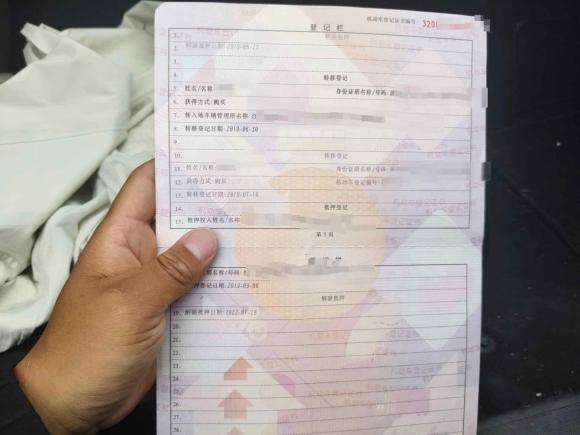 机动车登记证书编号: 320
登记栏
1. 解除抵押
2. 解除抵押日期:2019-06-25
3.
4. 转移登记
5. 姓名/名称: 身份证明名称/号码:
6. 获得方式:购买
7. 转入地车辆管理所名称:
8. 转移登记日期:2019-06-30
9.
10. 转移登记
11. 姓名/名称: 身份证明名称/号码:
12. 获得方式:购买 机动车登记编号:
13. 转移登记日期:2019-07-16
14. 抵押登记
15. 抵押权人姓名/名称:
第3页
明名称/号码:
押登记日期:2019-09-06
解除抵押
19. 解除抵押日期:2022-07-25
20.
21.
22.
23.
24.
25.
26.
27.
28.